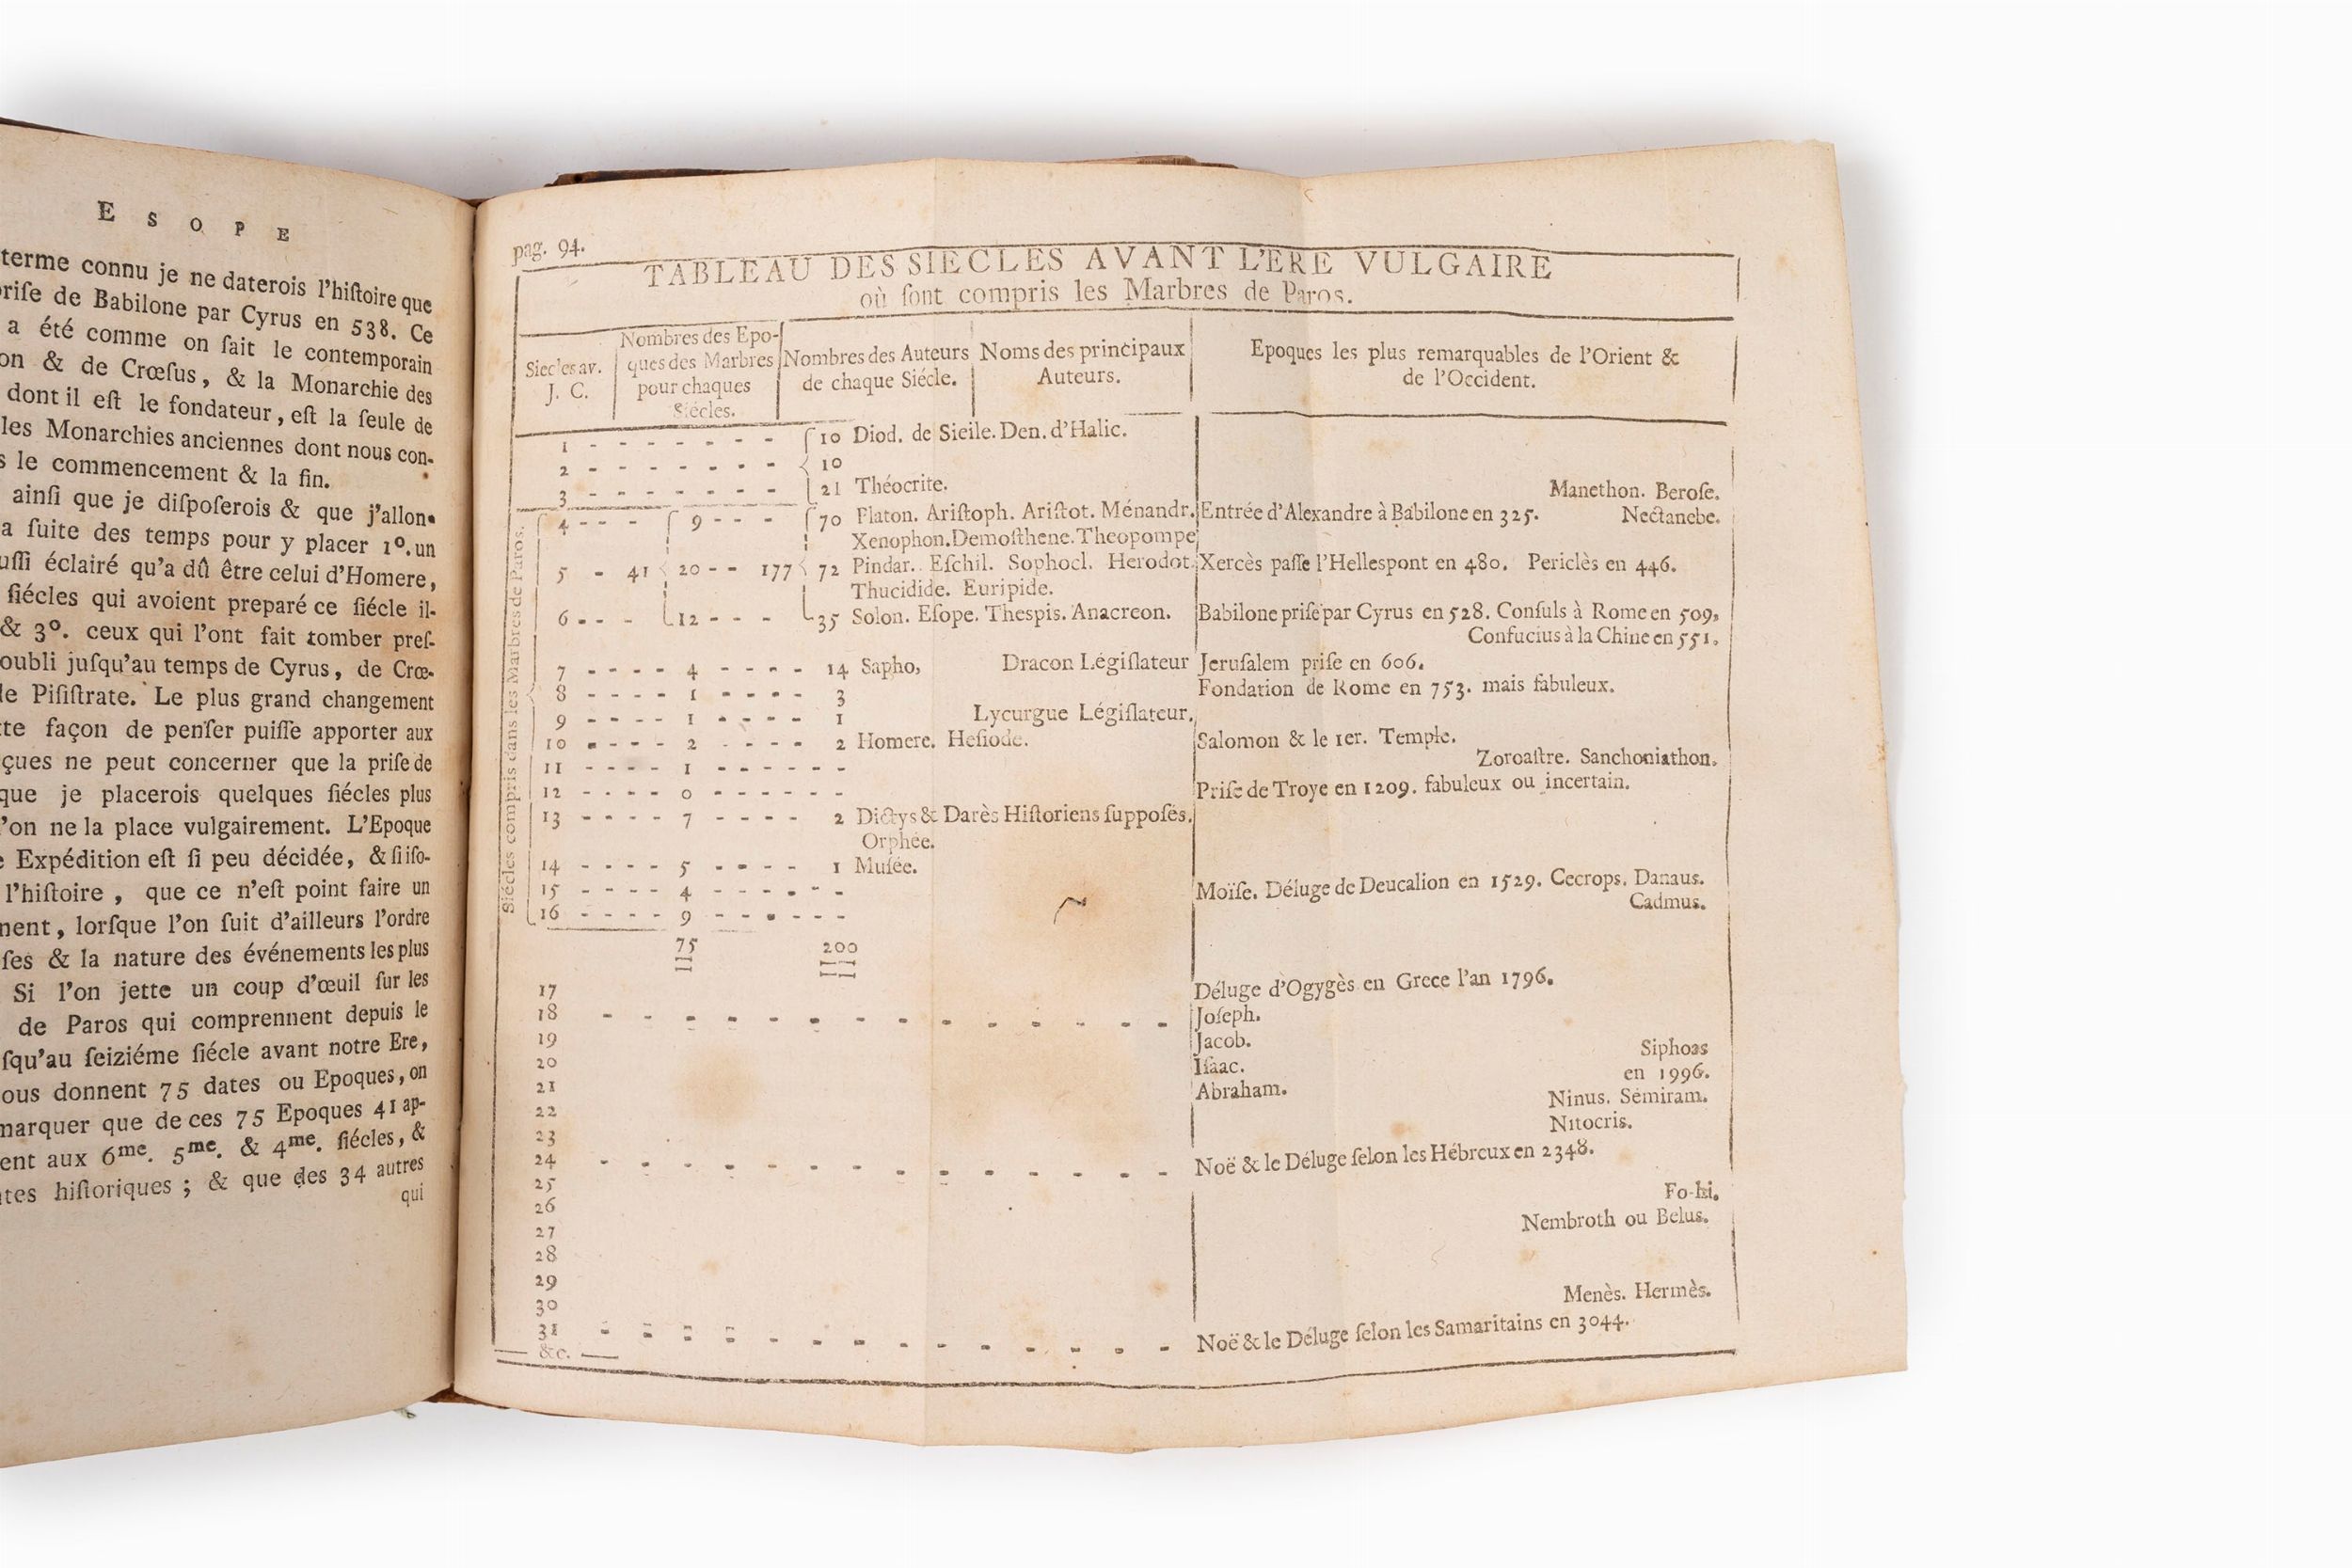 E S O P E
terme connu je ne daterois l'hiſtoire que
priſe de Babilone par Cyrus en 538. Ce
a été comme on ſait le contemporain
& de Crœſus, & la Monarchie des
dont il eſt le fondateur, eſt la ſeule de
les Monarchies anciennes dont nous con-
le commencement & la fin.
ainſi que je diſpoſerois & que j'allon-
a ſuite des temps pour y placer 1º. un
éclairé qu'a dû être celui d'Homere,
ſiécles qui avoient preparé ce ſiécle il-
& 3º. ceux qui l'ont fait tomber preſ-
oubli juſqu'au temps de Cyrus, de Crœ-
de Piſiſtrate. Le plus grand changement
façon de penſer puiſſe apporter aux
çues ne peut concerner que la priſe de
que je placerois quelques ſiécles plus
l'on ne la place vulgairement. L'Epoque
Expédition eſt ſi peu décidée, & ſi iſo-
l'hiſtoire, que ce n'eſt point faire un
ment, lorſque l'on ſuit d'ailleurs l'ordre
ſes & la nature des événements les plus
Si l'on jette un coup d'œuil ſur les
de Paros qui comprennent depuis le
ſqu'au ſeiziéme ſiécle avant notre Ere,
ous donnent 75 dates ou Epoques, on
marquer que de ces 75 Epoques 41 ap-
ent aux 6me. 5me. & 4me. ſiécles, &
tes hiſtoriques ; & que des 34 autres
qui
pag. 94.
TABLEAU DES SIECLES AVANT L'ERE VULGAIRE
où ſont compris les Marbres de Paros.
Siecles av. J. C.
Nombres des Epo-
ques des Marbres
pour chaques
Siécles.
Nombres des Auteurs
de chaque Siécle.
Noms des principaux
Auteurs.
Epoques les plus remarquables de l'Orient &
de l'Occident.
Siécles compris dans les Marbres de Paros.
1 - - - - - - - 10 Diod. de Sieile. Den. d'Halic.
2 - - - - - - - 10
3 - - - - - - - 21 Théocrite. Manethon. Beroſe.
4 - - - 9 - - - 70 Platon. Ariſtoph. Ariſtot. Ménandr. Entrée d'Alexandre à Babilone en 325. Nectanebe.
Xenophon. Demoſthene. Theopompe
5 - 41 20 - - 177 72 Pindar. Eſchil. Sophocl. Herodot. Xercès paſſe l'Helleſpont en 480. Periclès en 446.
Thucidide. Euripide.
6 - - - 12 - - - 35 Solon. Eſope. Theſpis. Anacreon. Babilone priſe par Cyrus en 528. Conſuls à Rome en 509,
Confucius à la Chine en 551.
7 - - - - 4 - - - - 14 Sapho, Dracon Légiſlateur Jeruſalem priſe en 606.
8 - - - - 1 - - - - 3 Fondation de Rome en 753. mais fabuleux.
9 - - - - 1 - - - - 1 Lycurgue Légiſlateur.
10 - - - - 2 - - - - 2 Homere. Heſiode. Salomon & le 1er. Temple.
Zoroaſtre. Sanchoniathon.
11 - - - - 1 - - - - - -
12 - - - - 0 - - - - - - Priſe de Troye en 1209. fabuleux ou incertain.
13 - - - - 7 - - - - 2 Dictys & Darès Hiſtoriens ſuppoſés.
Orphée.
14 - - - - 5 - - - - 1 Muſée.
15 - - - - 4 - - - - - - Moïſe. Déluge de Deucalion en 1529. Cecrops. Danaus.
Cadmus.
16 - - - - 9 - - - - - -
75 200
17 Déluge d'Ogygès en Grece l'an 1796.
18 - - - - - - - - - - - - - - Joſeph.
19 Jacob. Siphoas
20 Iſaac. en 1996.
21 Abraham. Ninus. Sémiram.
22 Nitocris.
23
24 - - - - - - - - - - - - - - Noë & le Déluge ſelon les Hébreux en 2348.
25 Fo-hi.
26 Nembroth ou Belus.
27
28
29 Menès. Hermès.
30
31 - - - - - - - - - - - - - - Noë & le Déluge ſelon les Samaritains en 3044.
&c.